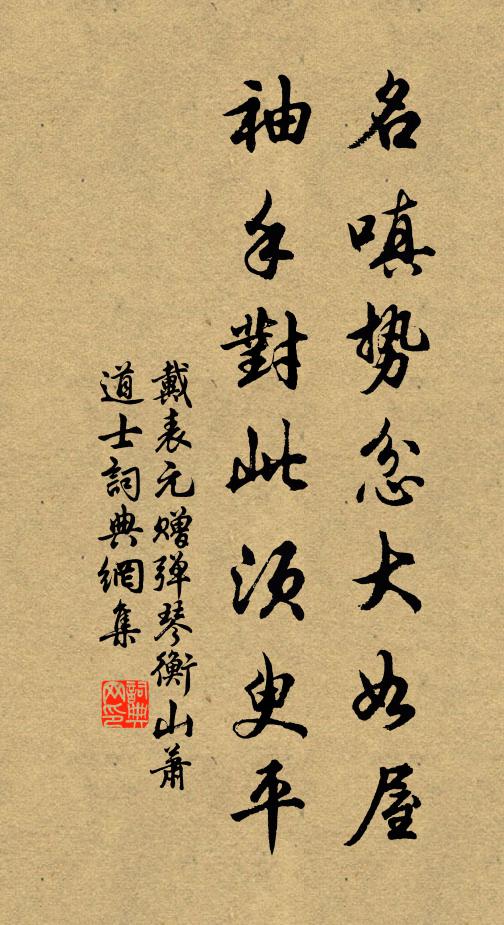 名嗔势忿大如屋
袖手對此須臾平
戴表元赠弹琴衡山萧
道士詞典網集
詞典网印